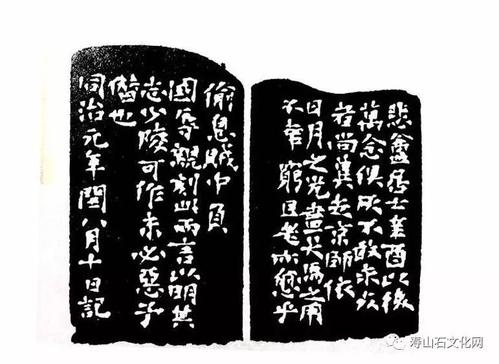 悲盦居士辛酉以後
萬念俱灰不敢求死
者尚冀走京師依
日月之光盡犬馬之用
不幸窮且老亦愈乎
偷息賊中負
國辱親刻此兩言以明其
志少陵可作未必惡予
僭也
同治元年閏八月十日記
寿山石文化网